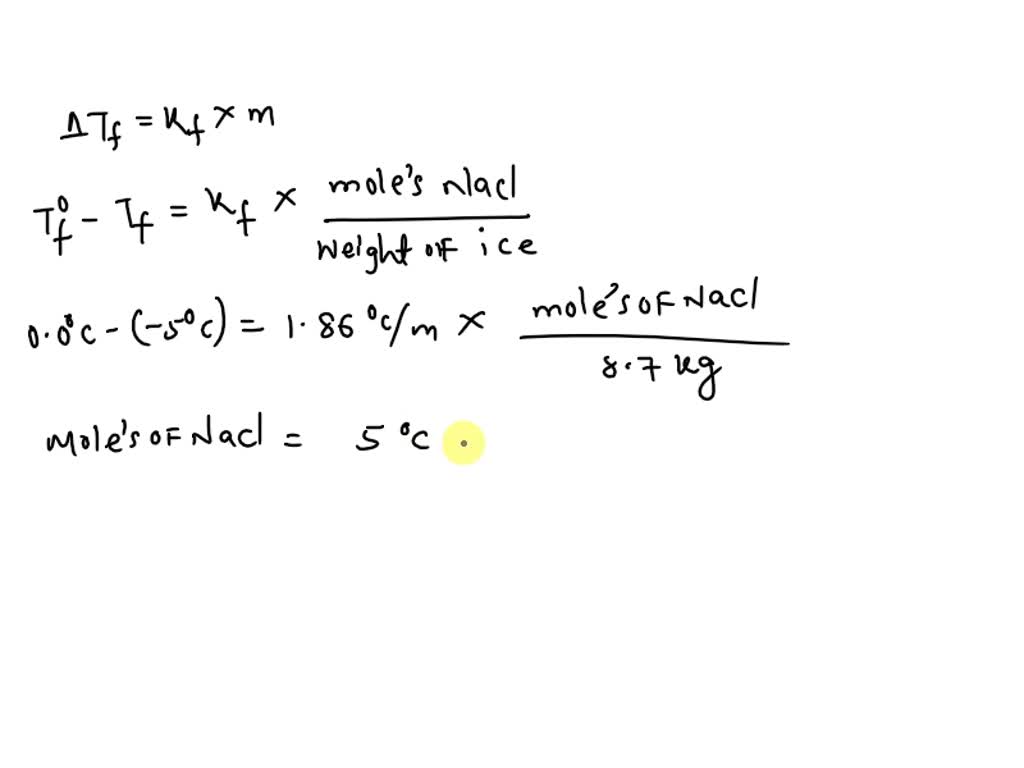 ΔTf = Kf × m
Tf⁰ - Tf = Kf × mole's Nacl / Weight of ice
0.0°C - (-5°C) = 1.86 °C/m × mole's OF Nacl / 8.7 kg
Mole's OF Nacl = 5 °C